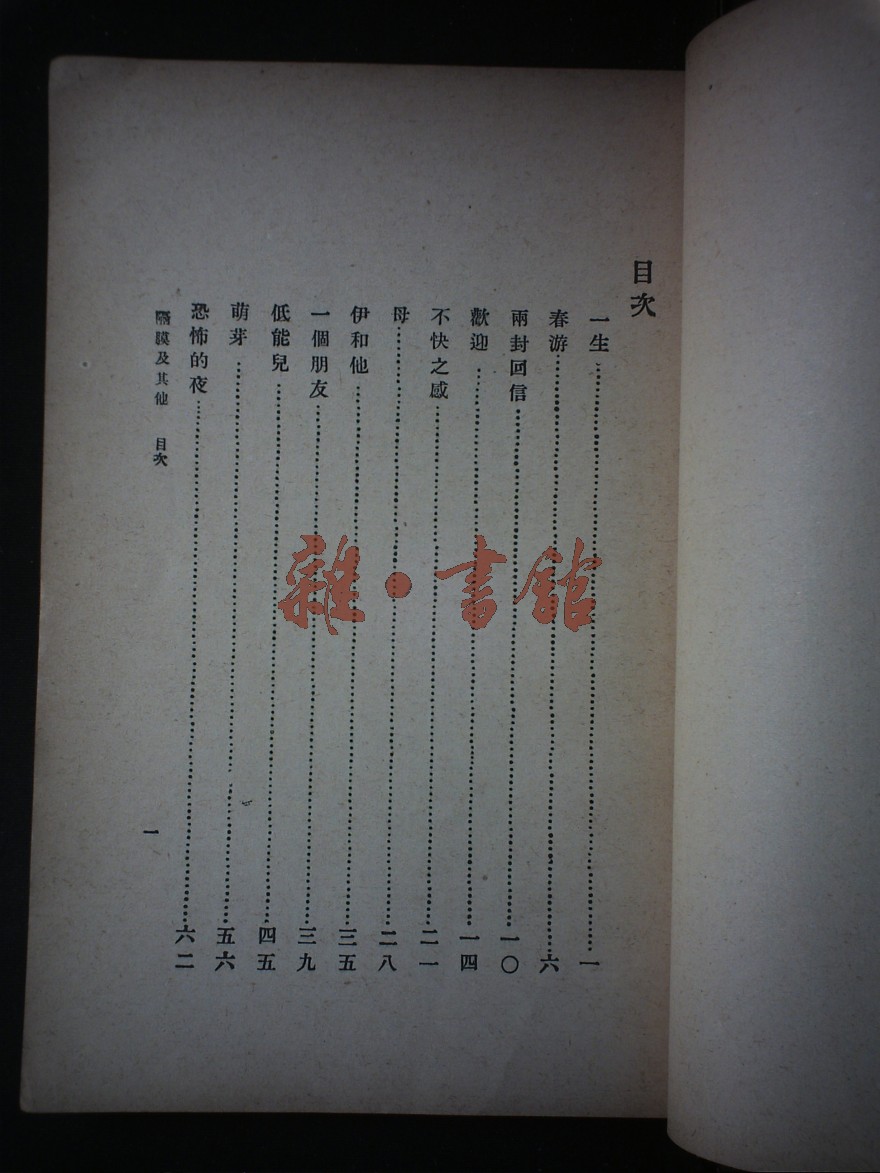 目次
一生⋯⋯⋯⋯⋯⋯⋯⋯⋯⋯一
春游⋯⋯⋯⋯⋯⋯⋯⋯⋯⋯六
兩封回信⋯⋯⋯⋯⋯⋯⋯⋯⋯⋯一〇
歡迎⋯⋯⋯⋯⋯⋯⋯⋯⋯⋯一四
不快之感⋯⋯⋯⋯⋯⋯⋯⋯⋯⋯二一
母⋯⋯⋯⋯⋯⋯⋯⋯⋯⋯二八
伊和他⋯⋯⋯⋯⋯⋯⋯⋯⋯⋯三五
一個朋友⋯⋯⋯⋯⋯⋯⋯⋯⋯⋯三九
低能兒⋯⋯⋯⋯⋯⋯⋯⋯⋯⋯四五
萌芽⋯⋯⋯⋯⋯⋯⋯⋯⋯⋯五六
恐怖的夜⋯⋯⋯⋯⋯⋯⋯⋯⋯⋯六二
隔膜及其他 目次
一
雜·書館